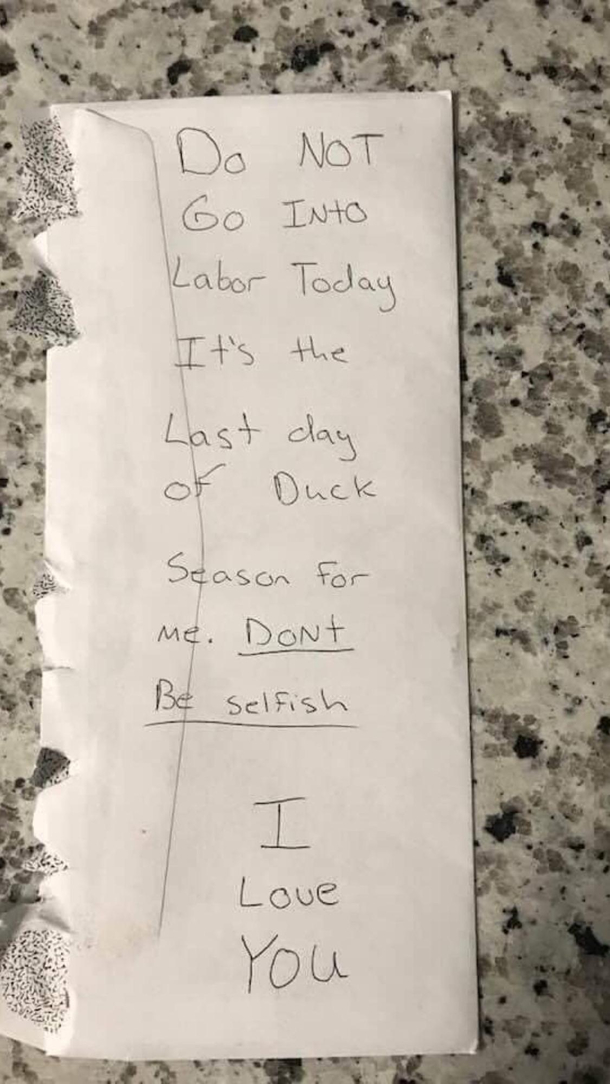 Do NOT
Go INto
Labor Today
It's the
Last day
of Duck
Season for
me. DONt
Be selfish
I
Love
YOU